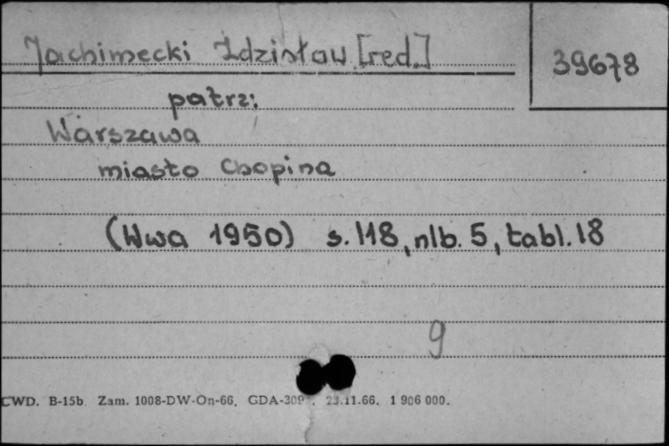 Jachimecki Zdzisław [red.]
39678
patrz:
Warszawa
miasto Chopina
(Wwa 1950) s. 118, nlb. 5, tabl. 18
9
CWD. B-15b. Zam. 1008-DW-On-66. GDA-309. 23.11.66. 1 906 000.